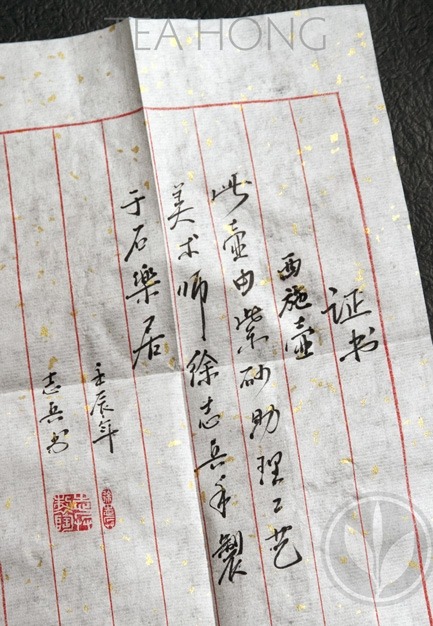 TEA HONG
证书
西施壶
此壶由紫砂助理工艺
美术师徐志兵手製
于石樂居
壬辰年
志兵书